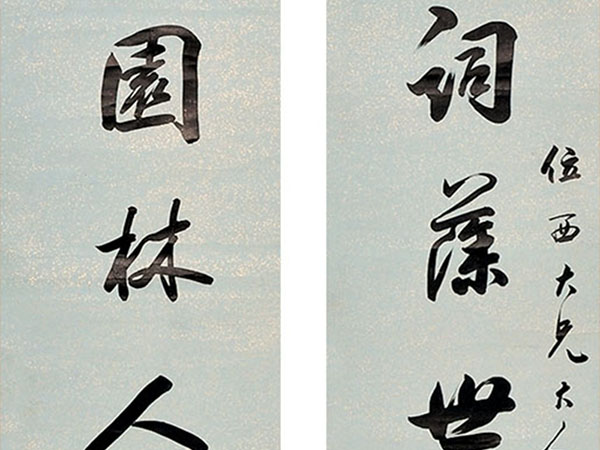 位西大兄大人
詞藻世
園林人